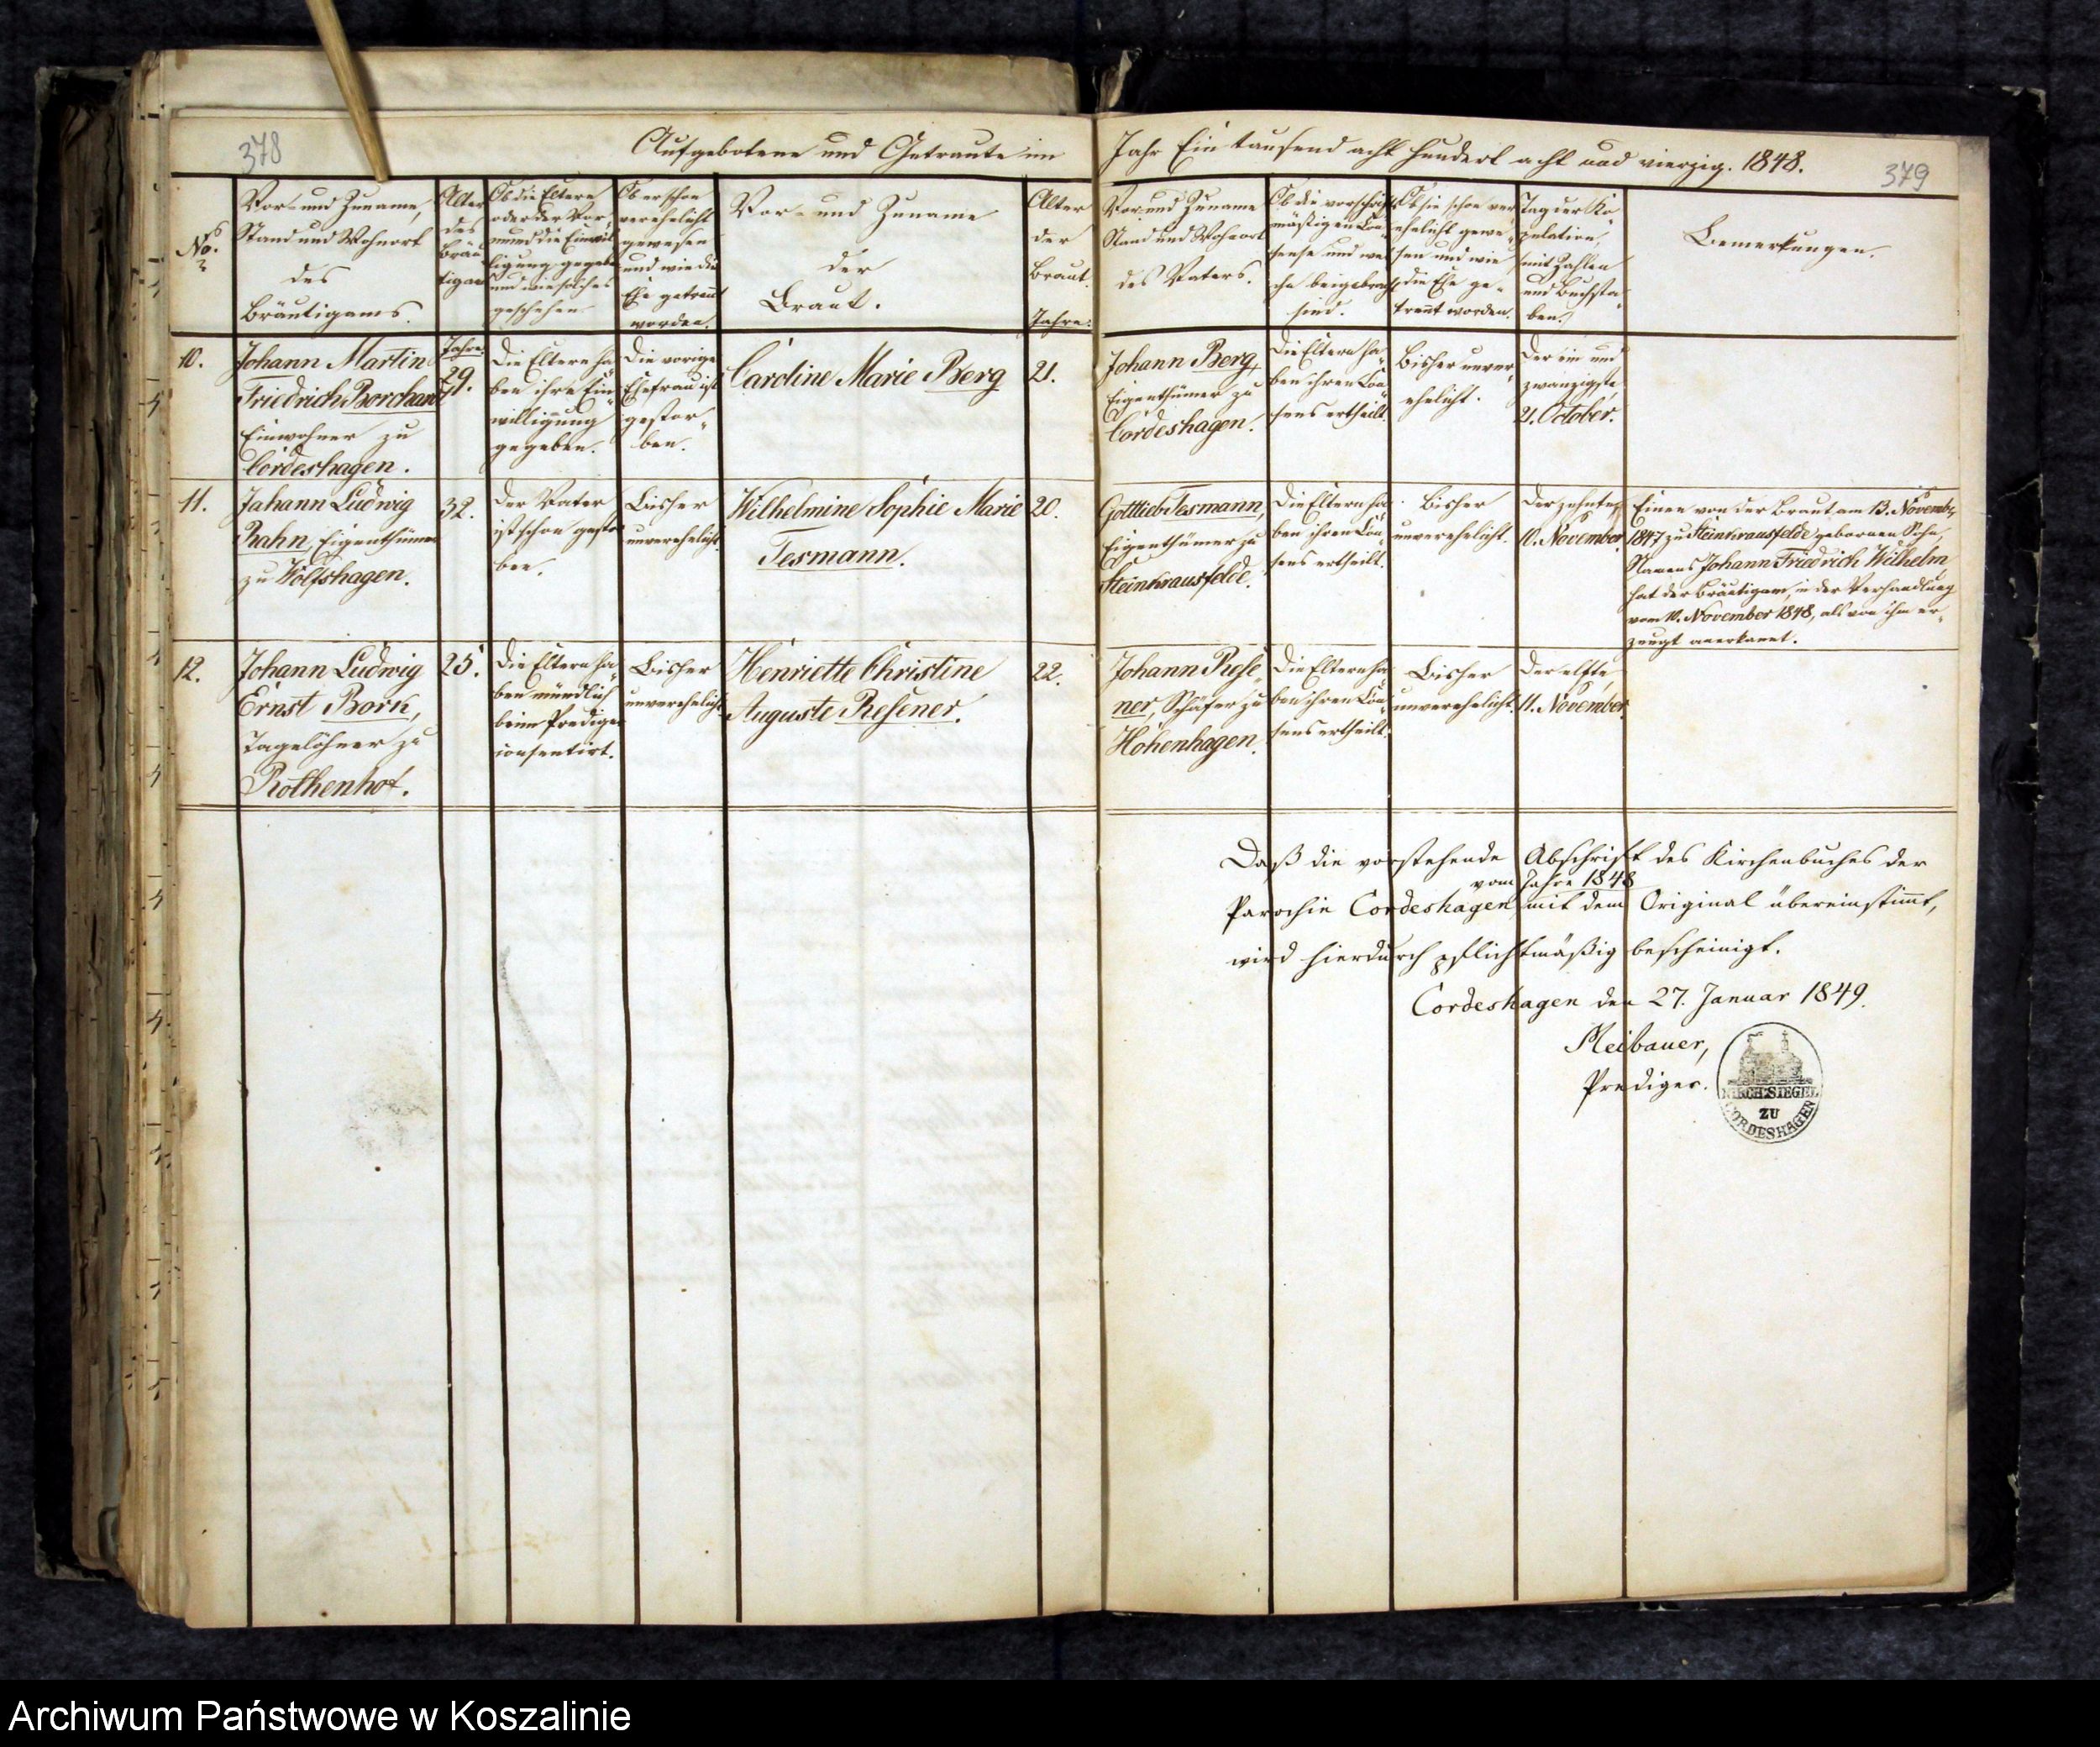 378
Aufgebotene und Getraute im
Jahr Ein tausend acht hundert acht und vierzig. 1848.
379
No.
Vor- und Zuname,
Stand und Wohnort
des
Bräutigams.
Alter
des
Bräu-
tigams
Ob die Eltern
oder der Vor-
mund die Einwil-
ligung gegeben
und wie solches
geschehen
Ob er schon
verehelicht
gewesen
und wie die
Ehe getrennt
worden.
Vor- und Zuname
der
Braut.
Alter
der
Braut.
Jahre:
Vor- und Zuname
Stand und Wohnort
des Vaters.
Ob die vorschrift-
mäßigen Con-
sense und wel-
che beigebracht
sind.
Ob sie schon ver-
ehelicht gewe-
sen und wie
die Ehe ge-
trennt worden.
Tag der Ko-
pulation,
mit Zahlen
und Buchsta-
ben.
Bemerkungen.
10.
Johann Martin
Friedrich Borchardt
Einwohner zu
Cordeshagen.
Jahre:
29.
Die Eltern ha-
ben ihre Ein-
willigung
gegeben.
Die vorige
Ehefrau ist
gestor-
ben.
Caroline Marie Berg
21.
Johann Berg,
Eigenthümer zu
Cordeshagen.
Die Eltern ha-
ben ihren Con-
sens ertheilt.
Bisher unver-
ehelicht.
Der ein und
zwanzigste,
21. October.
11.
Johann Ludwig
Rahn, Eigenthümer
zu Wolfshagen.
32.
Der Vater
ist schon gestor-
ben.
Bisher
unverehelicht.
Wilhelmine Sophie Marie
Tesmann.
20.
Gottlieb Tesmann,
Eigenthümer zu
Steinkrausfelde.
Die Eltern ha-
ben ihren Con-
sens ertheilt.
Bisher
unverehelicht.
Der zehnte,
10. November.
Einen von der Braut am 13. Novembr
1847 zu Steinkrausfelde gebornen Sohn,
Namens Johann Friedrich Wilhelm
hat der Bräutigam, in der Verhandlung
vom 10. November 1848, als von ihm er-
zeugt anerkannt.
12.
Johann Ludwig
Ernst Bork,
Tagelöhner zu
Rothenhof.
25.
Die Eltern ha-
ben mündlich
beim Prediger
consentirt.
Bisher
unverehelicht
Henriette Christine
Auguste Piesener.
22.
Johann Piese-
ner, Schäfer zu
Hohenhagen.
Die Eltern ha-
ben ihren Con-
sens ertheilt.
Bisher
unverehelicht.
Der elfte,
11. November.
Daß die vorstehende Abschrift des Kirchenbuches der
vom Jahre 1848
Parochie Cordeshagen mit dem Original übereinstimmt,
wird hierdurch pflichtmäßig bescheinigt.
Cordeshagen den 27. Januar 1849.
Meibauer,
Prediger.
KIRCH: SIEGEL
ZU
CORDESHAGEN
Archiwum Państwowe w Koszalinie